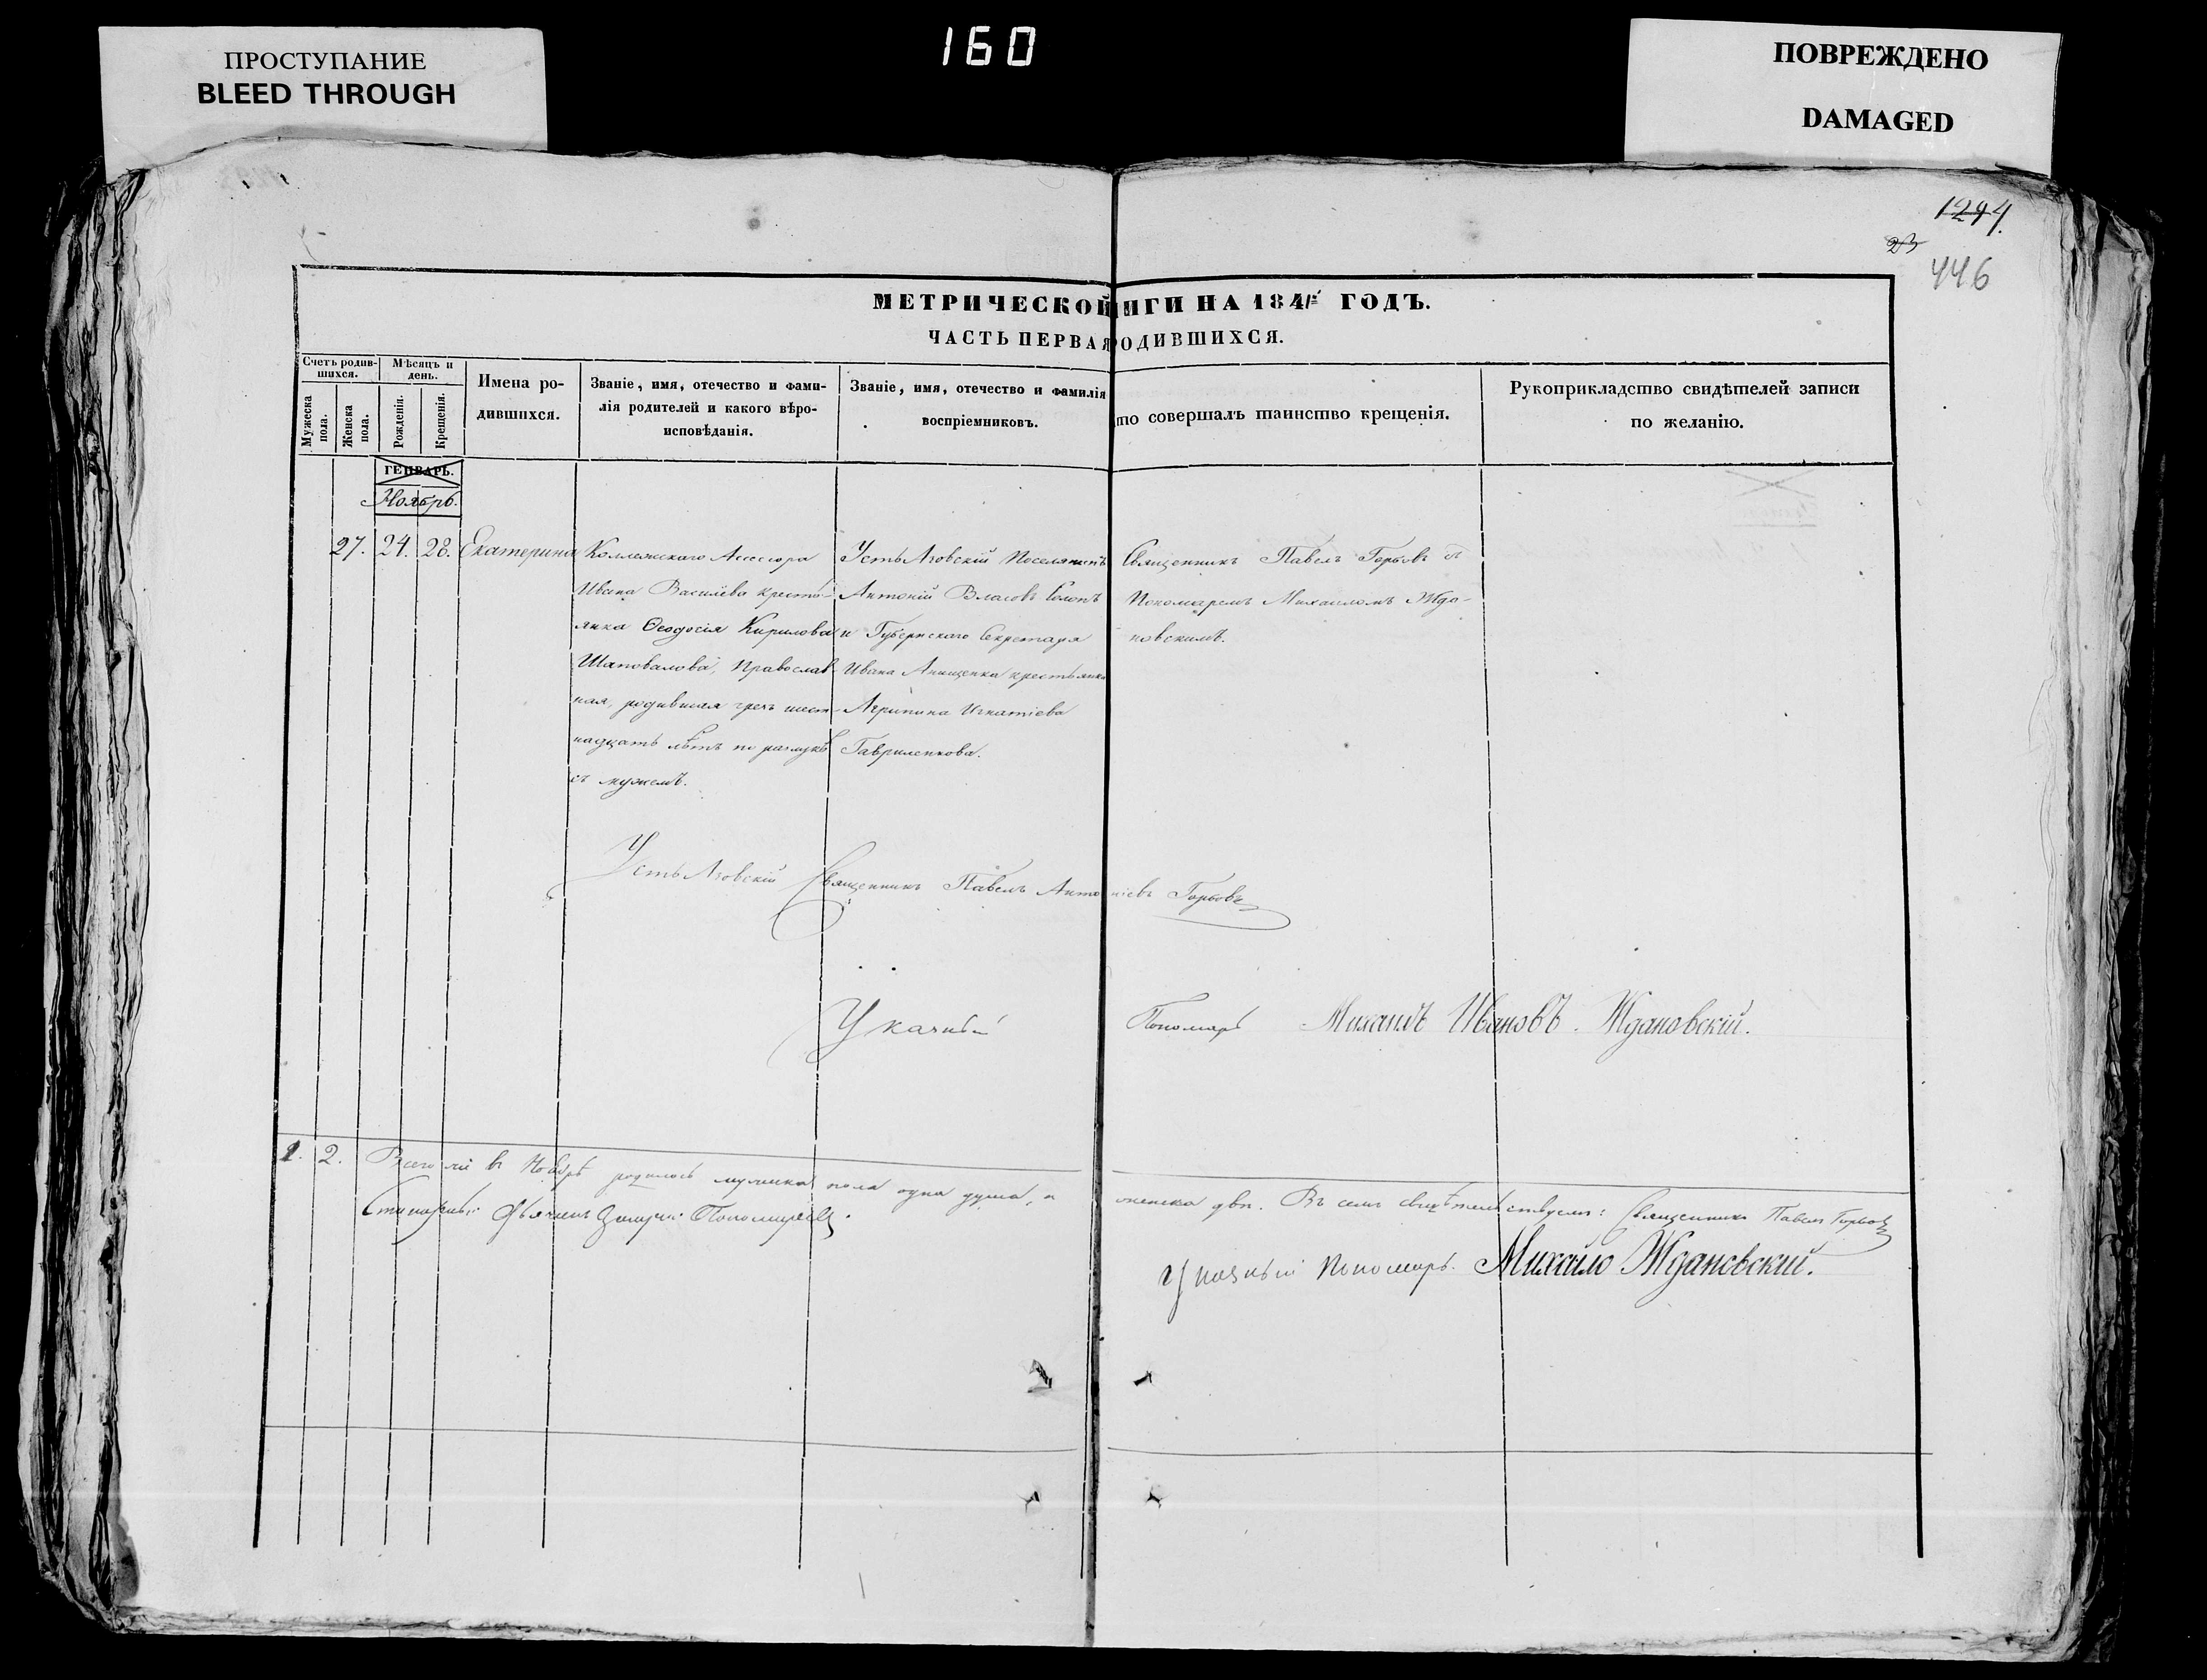 ПРОСТУПАНИЕ
BLEED THROUGH
160
ПОВРЕЖДЕНО
DAMAGED
1294.
23
446
МЕТРИЧЕСКОЙ ИГИ НА 184 ГОДЪ.
ЧАСТЬ ПЕРВАЯ ОДИВШИХСЯ.
Счетъ родив-
шихся.
Мѣсяцъ и
день.
Мужеска
пола.
Женска
пола.
Рожденія.
Крещенія.
Имена ро-
дившихся.
Званіе, имя, отечество и фами-
лія родителей и какого вѣро-
исповѣданія.
Званіе, имя, отечество и фамилія
воспріемниковъ.
то совершалъ таинство крещенія.
Рукоприкладство свидѣтелей записи
по желанію.
ГЕНВАРЬ.
Ноябрь.
27. 24. 28. Екатерина
Коллежскаго Ассесора
Ивана Василёва крестья-
янка Ѳеодосія Кирилова
Шаповалова, Православ-
ная, родившая чрезъ шест-
надцать лѣтъ по разлукѣ
съ мужемъ.
Усть Азовскій Поселянинъ
Антоній Власовъ
и Губернскаго Секретаря
Ивана Анищенка крестьянка
Агрипина Игнатіева
Гавриленкова.
Священникъ Павелъ Горбовъ
Пономаремъ Михаиломъ Жда-
новскимъ.
Усть Азовскій Священникъ Павелъ Антоніевъ Горбовъ
Указный Пономарь Михаилъ Ивановъ Ждановскій.
1. 2. Всего въ Ноябрѣ родилось мужеска пола одна душа, а женска двѣ. Въ семъ свидѣтельствуемъ: Священникъ Павелъ Горбовъ
Указный Пономарь. Михайло Ждановскій.